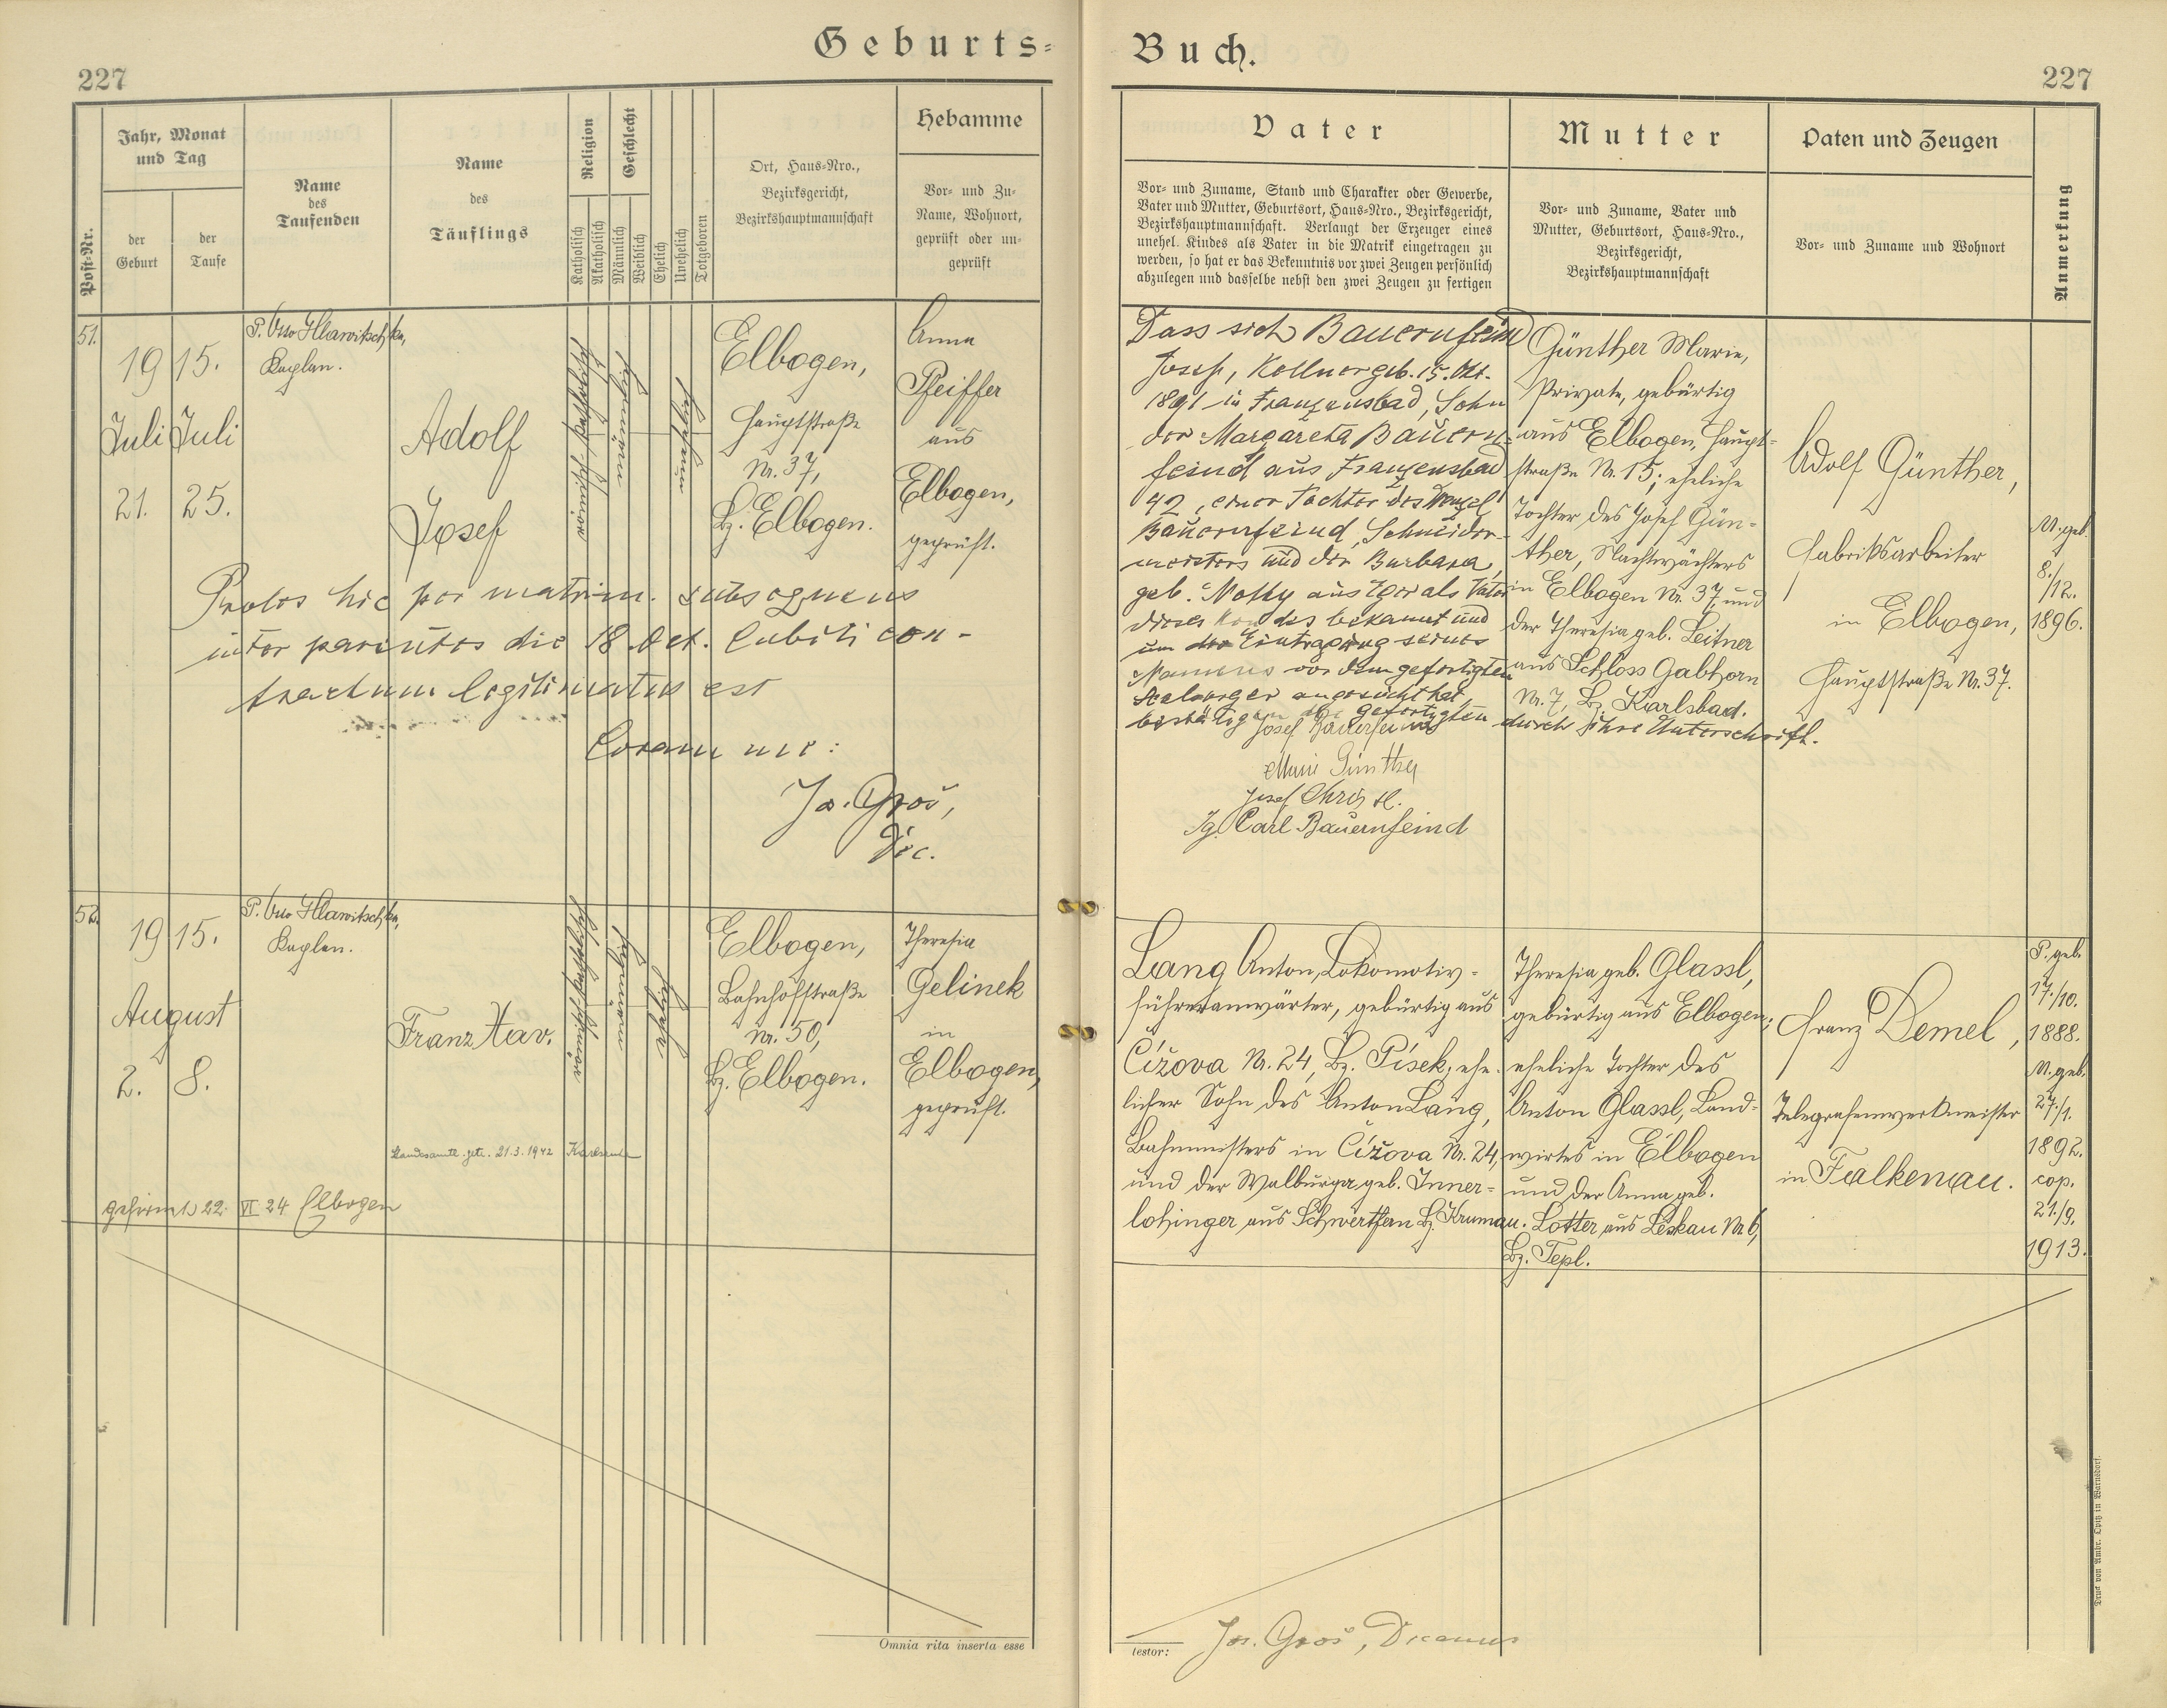 Geburts-
Buch.
227
227
Post-Nr.
Jahr, Monat
und Tag
der
Geburt
der
Taufe
Name
des
Taufenden
Name
des
Täuflings
Religion
Katholisch
Akatholisch
Geschlecht
Männlich
Weiblich
Ehelich
Unehelich
Totgeboren
Ort, Haus-Nro.,
Bezirksgericht,
Bezirkshauptmannschaft
Hebamme
Vor- und Zu-
Name, Wohnort,
geprüft oder un-
geprüft
Vater
Vor- und Zuname, Stand und Charakter oder Gewerbe,
Vater und Mutter, Geburtsort, Haus-Nro., Bezirksgericht,
Bezirkshauptmannschaft. Verlangt der Erzeuger eines
unehel. Kindes als Vater in die Matrik eingetragen zu
werden, so hat er das Bekenntnis vor zwei Zeugen persönlich
abzulegen und dasselbe nebst den zwei Zeugen zu fertigen
Mutter
Vor- und Zuname, Vater und
Mutter, Geburtsort, Haus-Nro.,
Bezirksgericht,
Bezirkshauptmannschaft
Paten und Zeugen
Vor- und Zuname und Wohnort
Anmerkung
51.
1915.
Juli Juli
21. 25.
P. Otto Hlawitschka,
Kaplan.
Adolf
Josef
römisch-katholisch
Elbogen,
Hauptstraße
Nr. 37,
Bz. Elbogen.
Anna
Pfeiffer
aus
Elbogen,
geprüft.
Proles hic per matrim. subsequens
inter parentes die 18. Oct. Cubiti con-
tractum legitimatus est
Coram me:
Jos. Groš,
Dec.
Dass sich Bauernfeind
Josef, Kellner geb. 15. Okt.
1891 in Franzensbad, Sohn
der Margareta Bauern-
feind aus Franzensbad
42, einer Tochter des Wenzel
Bauernfeind, Schneider-
meisters und der Barbara,
geb. Mothy aus Eger als Vater
dieses Kindes bekannt und
um die Eintragung seines
Namens vor dem gefertigten
Seelsorger angesucht hat,
bestätigen die gefertigten durch ihre Unterschrift.
Josef Bauernfeind
Marie Günther
Josef Christl.
Ig. Carl Bauernfeind
Günther Marie,
Private, gebürtig
aus Elbogen, Haupt-
straße Nr. 15; eheliche
Tochter des Josef Gün-
ther, Nachtwächters
in Elbogen Nr. 37, und
der Theresia geb. Leitner
aus Schloss Gabhorn
Nr. 7, Bz. Karlsbad.
Adolf Günther,
Fabriksarbeiter
in Elbogen,
Hauptstraße Nr. 37.
M. geb.
8./
/12.
1896.
52.
1915.
August
2. 8.
P. Otto Hlawitschka,
Kaplan.
Franz Xav.
römisch-katholisch
Elbogen,
Bahnhofstraße
Nr. 50,
Bz. Elbogen.
Theresia
Gelinek
in
Elbogen,
geprüft.
Standesamtl. getr. 21.3.1942 Karlsruhe
gefirmt 22. VI 24 Elbogen
Lang Anton, Lokomotiv-
führeranwärter, gebürtig aus
Čížova Nr. 24, Bz. Písek; ehe-
licher Sohn des Anton Lang,
Bahnmeisters in Čížova Nr. 24,
und der Walburga geb. Inner-
lohinger aus Bz. Krumau.
Theresia geb. Glassl,
gebürtig aus Elbogen;
eheliche Tochter des
Anton Glassl, Land-
wirtes in Elbogen
und der Anna geb.
Lotter aus Leskau Nr. 6,
Bz. Tepl.
Franz Demel,
Telegrafenwerkmeister
in Falkenau.
P. geb.
17./10.
1888.
M. geb.
27./1.
1892.
cop.
21./9.
1913.
Omnia rita inserta esse
testor:
Jos. Groš, Decanus
Druck von Ambr. Opitz in Warnsdorf.